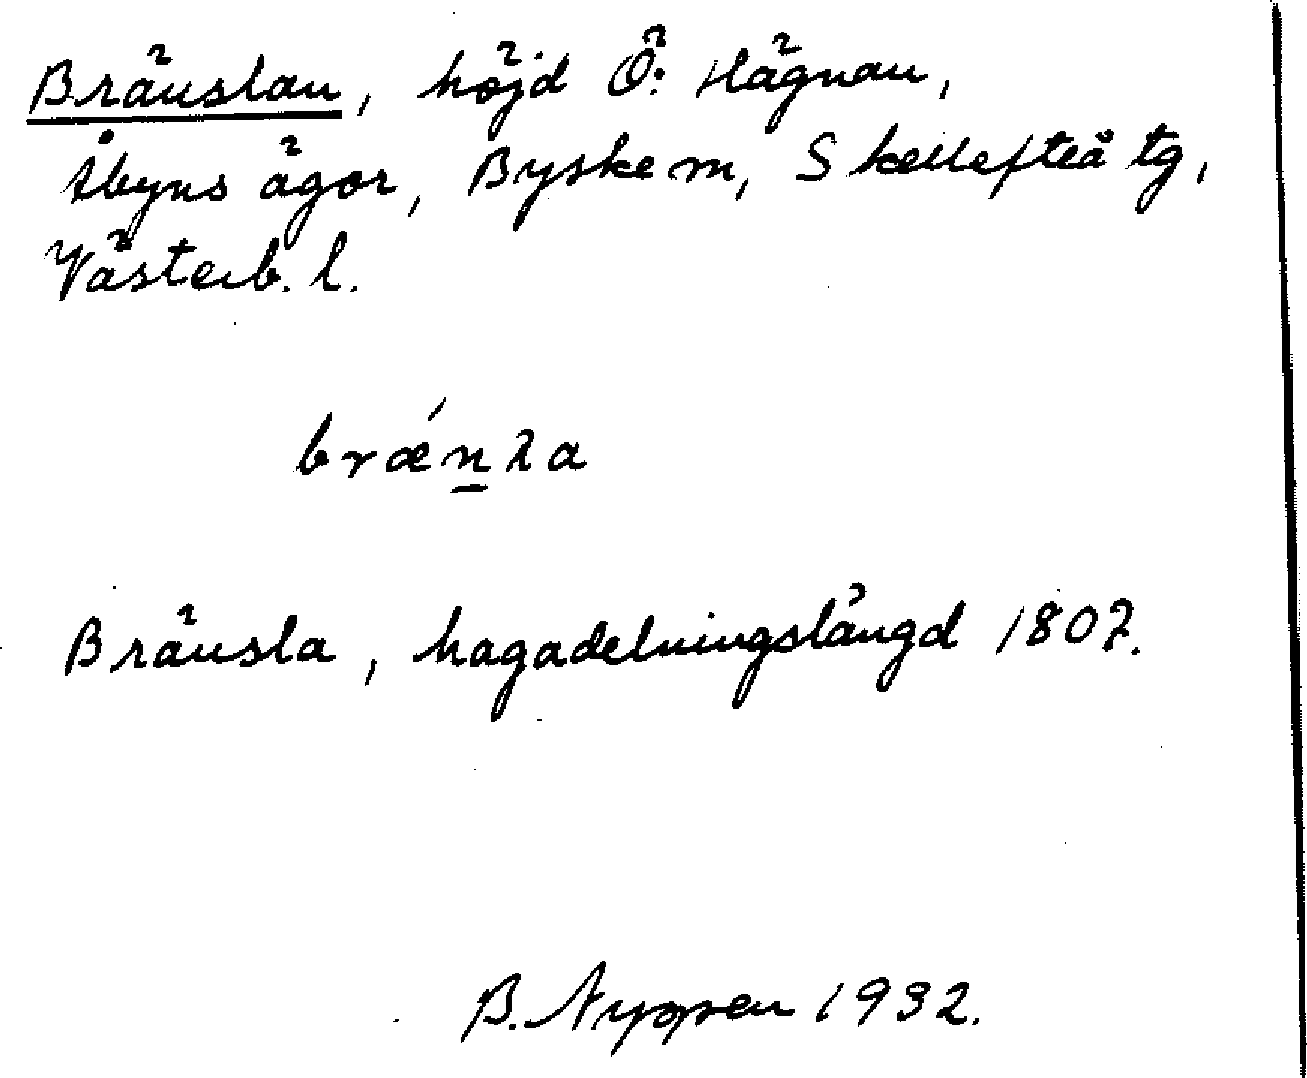 Bränslan, höjd Ö: Hägnan,
Åbyns ägor, Byske sn, Skellefteå tg,
Västerb. l.
brǽn̲λa
Bränsla, hagadelningslängd 1807.
B. Nyppen 1932.